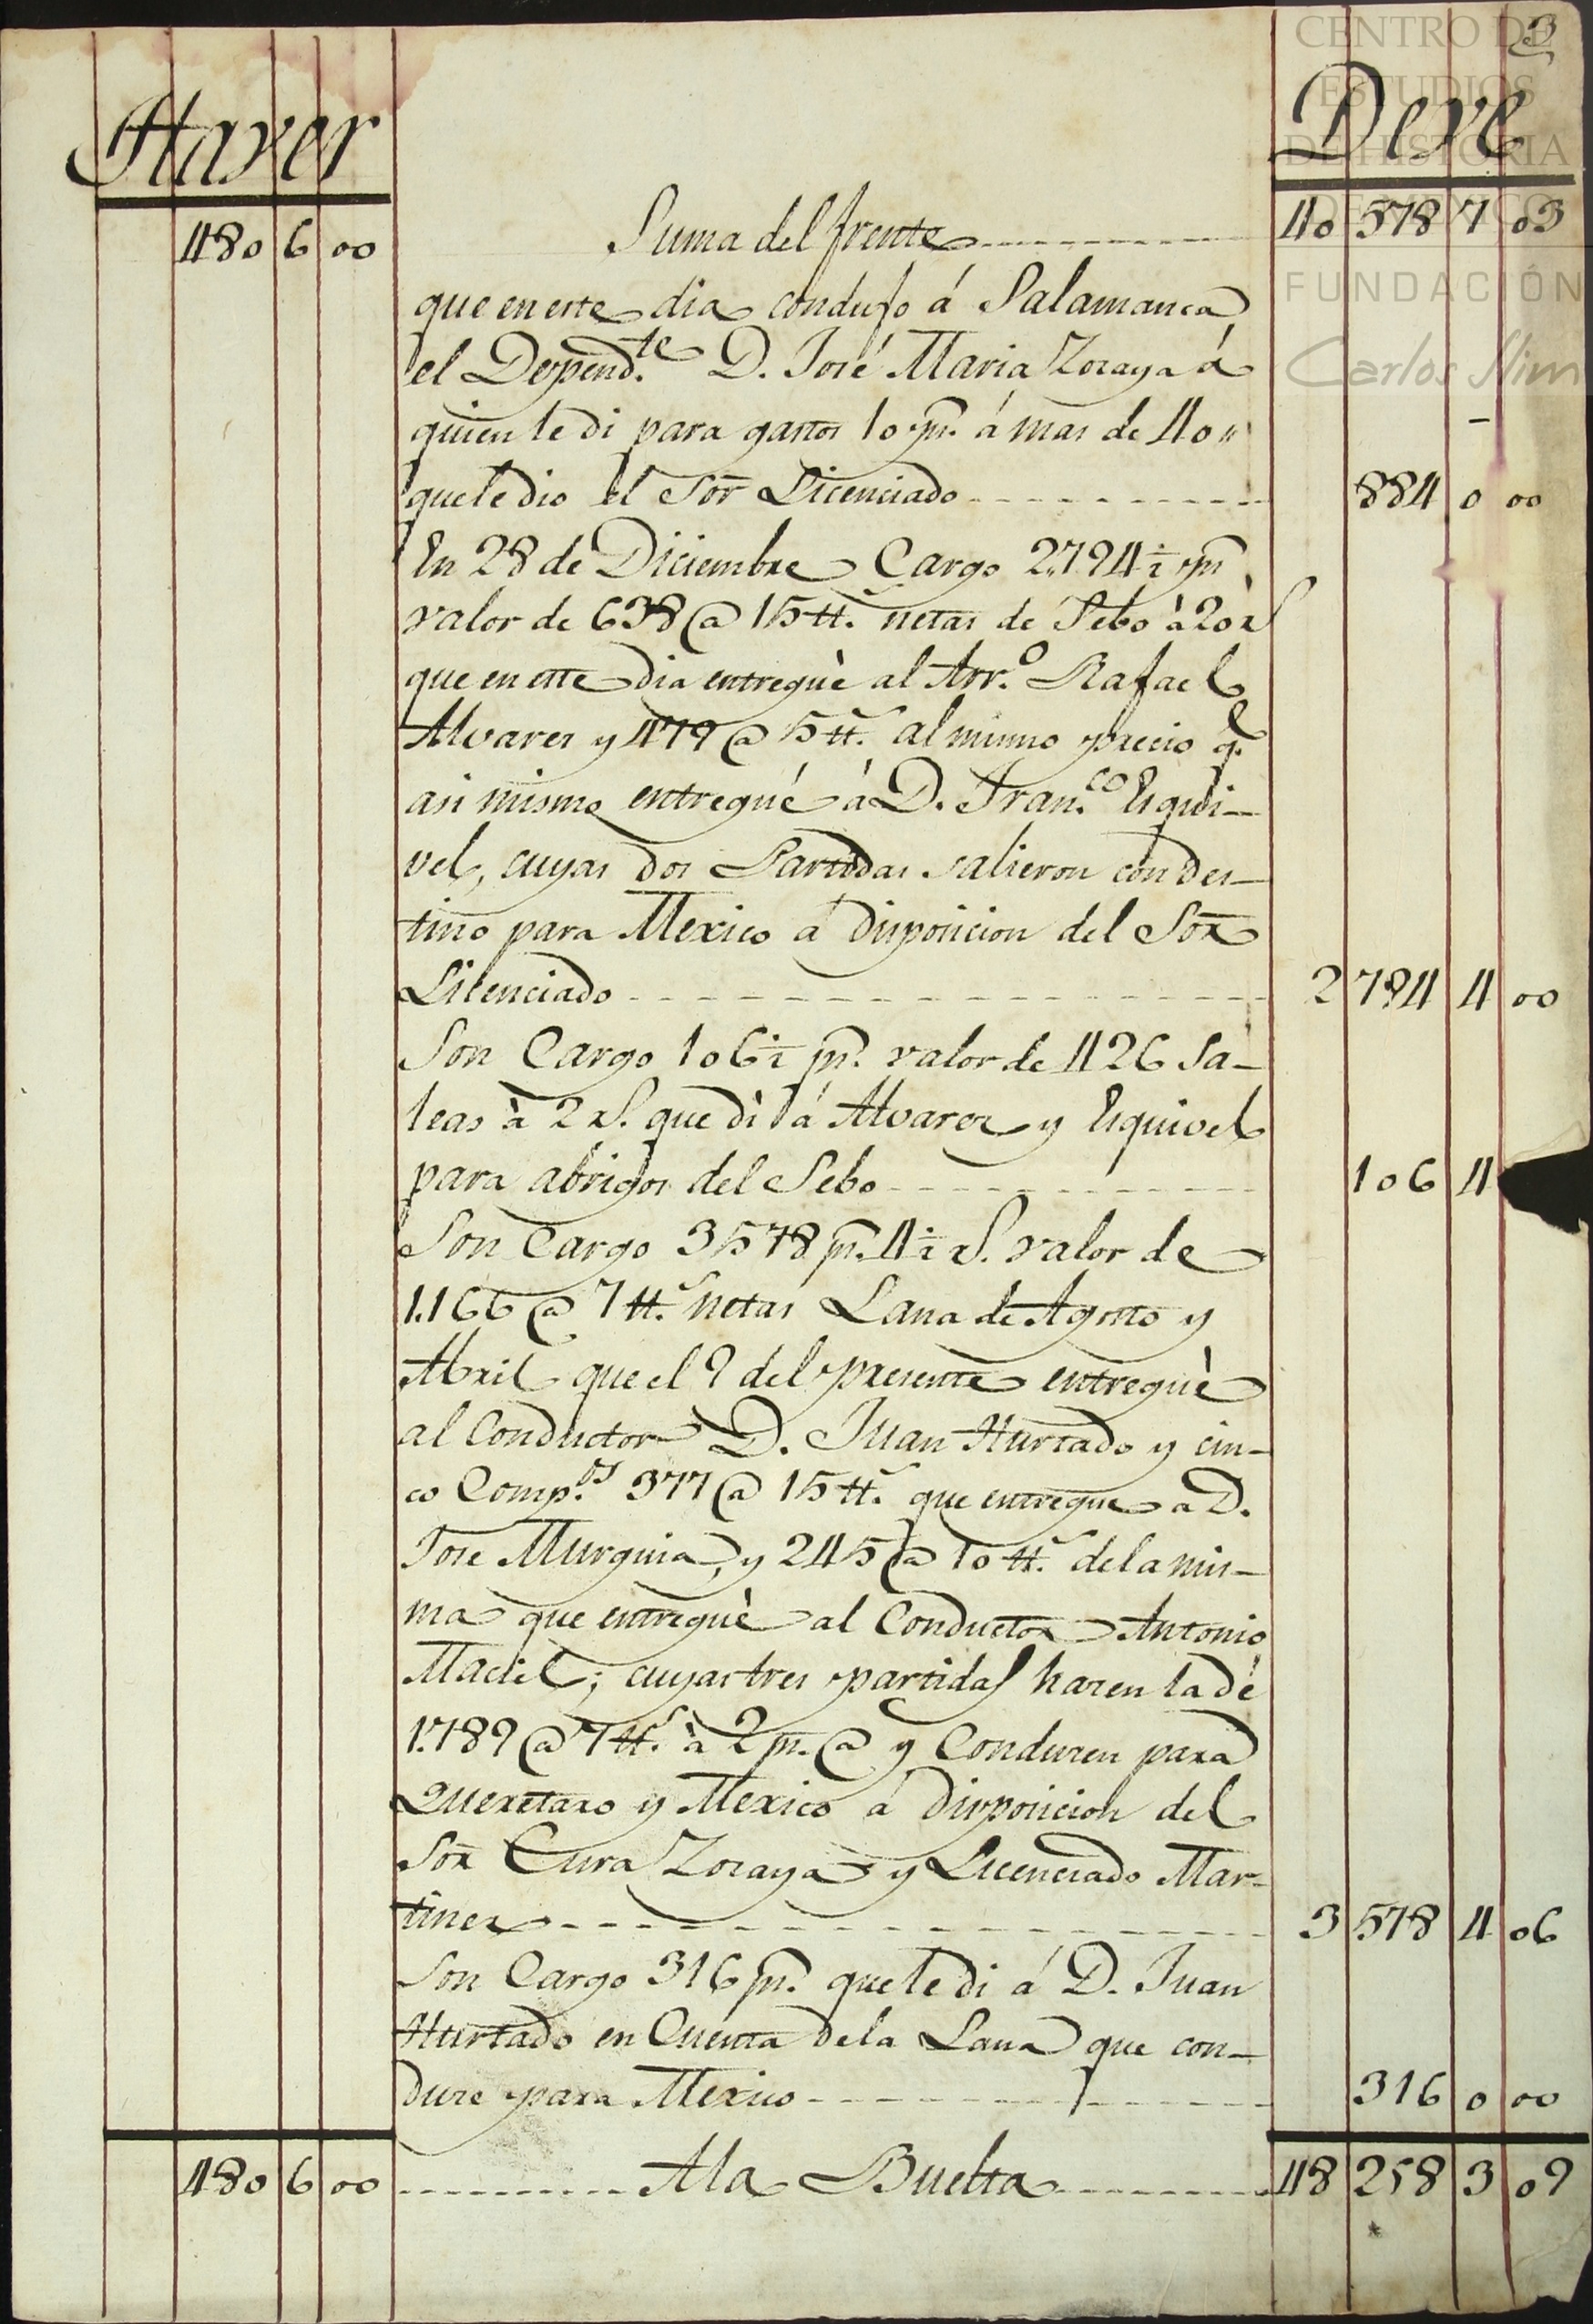 3
CENTRO DE
ESTUDIOS
DE HISTORIA
DE MÉXICO
FUNDACIÓN
Carlos Slim
Haver
Deve
480 6 00 Suma del frente 40 578 7 03
que en este dia condujo á Salamanca
el Depend.te D. José Maria Zozaya á
quien le di para gastos 10 ps. á mas de 40 "
que le dio el Sor Licenciado 884 0 00
En 28 de Diciembre Cargo 2.794 ½ ps
valor de 638 @ 15 tt.s netas de Sebo à 20 rs
que en este dia entreguè al Arr.o Rafael
Alvarez y 479 @ 5 tt.s al mismo precio q.e
asi mismo entregué á D. Fran.co Esqui-
vel, cuyas dos Partidas salieron con des-
tino para Mexico á disposicion del Sor
Licenciado 2 794 4 00
Son Cargo 106 ½ ps. valor de 426 Sa-
leas à 2 rs. que dì á Alvarez y Esquivel
para abrigos del Sebo 106 4
Son Cargo 3578 ps. 4 ½ rs. valor de
1.166 @ 7 tt.s netas Lana de Agosto y
Abril que el 9 del presente entreguè
al Conductor D. Juan Hurtado y cin-
co Comp.os 377 @ 15 tt.s que entregue a D.
Jose Murguia, y 245 @ 10 tt.s de la mis-
ma que entreguè al Conductor Antonio
Maciel; cuyas tres partidas hazen la de
1.789 @ 7 tt.s à 2 ps. @ y Conduzen para
Queretaro y Mexico á disposicion del
Sor Cura Zozaya y Licenciado Mar-
tinez 3 578 4 06
Son Cargo 316 ps. que le di á D. Juan
Hurtado en Cuenta de la Lana que con-
duze para Mexico 316 0 00
480 6 00 A la Buelta 48 258 3 09